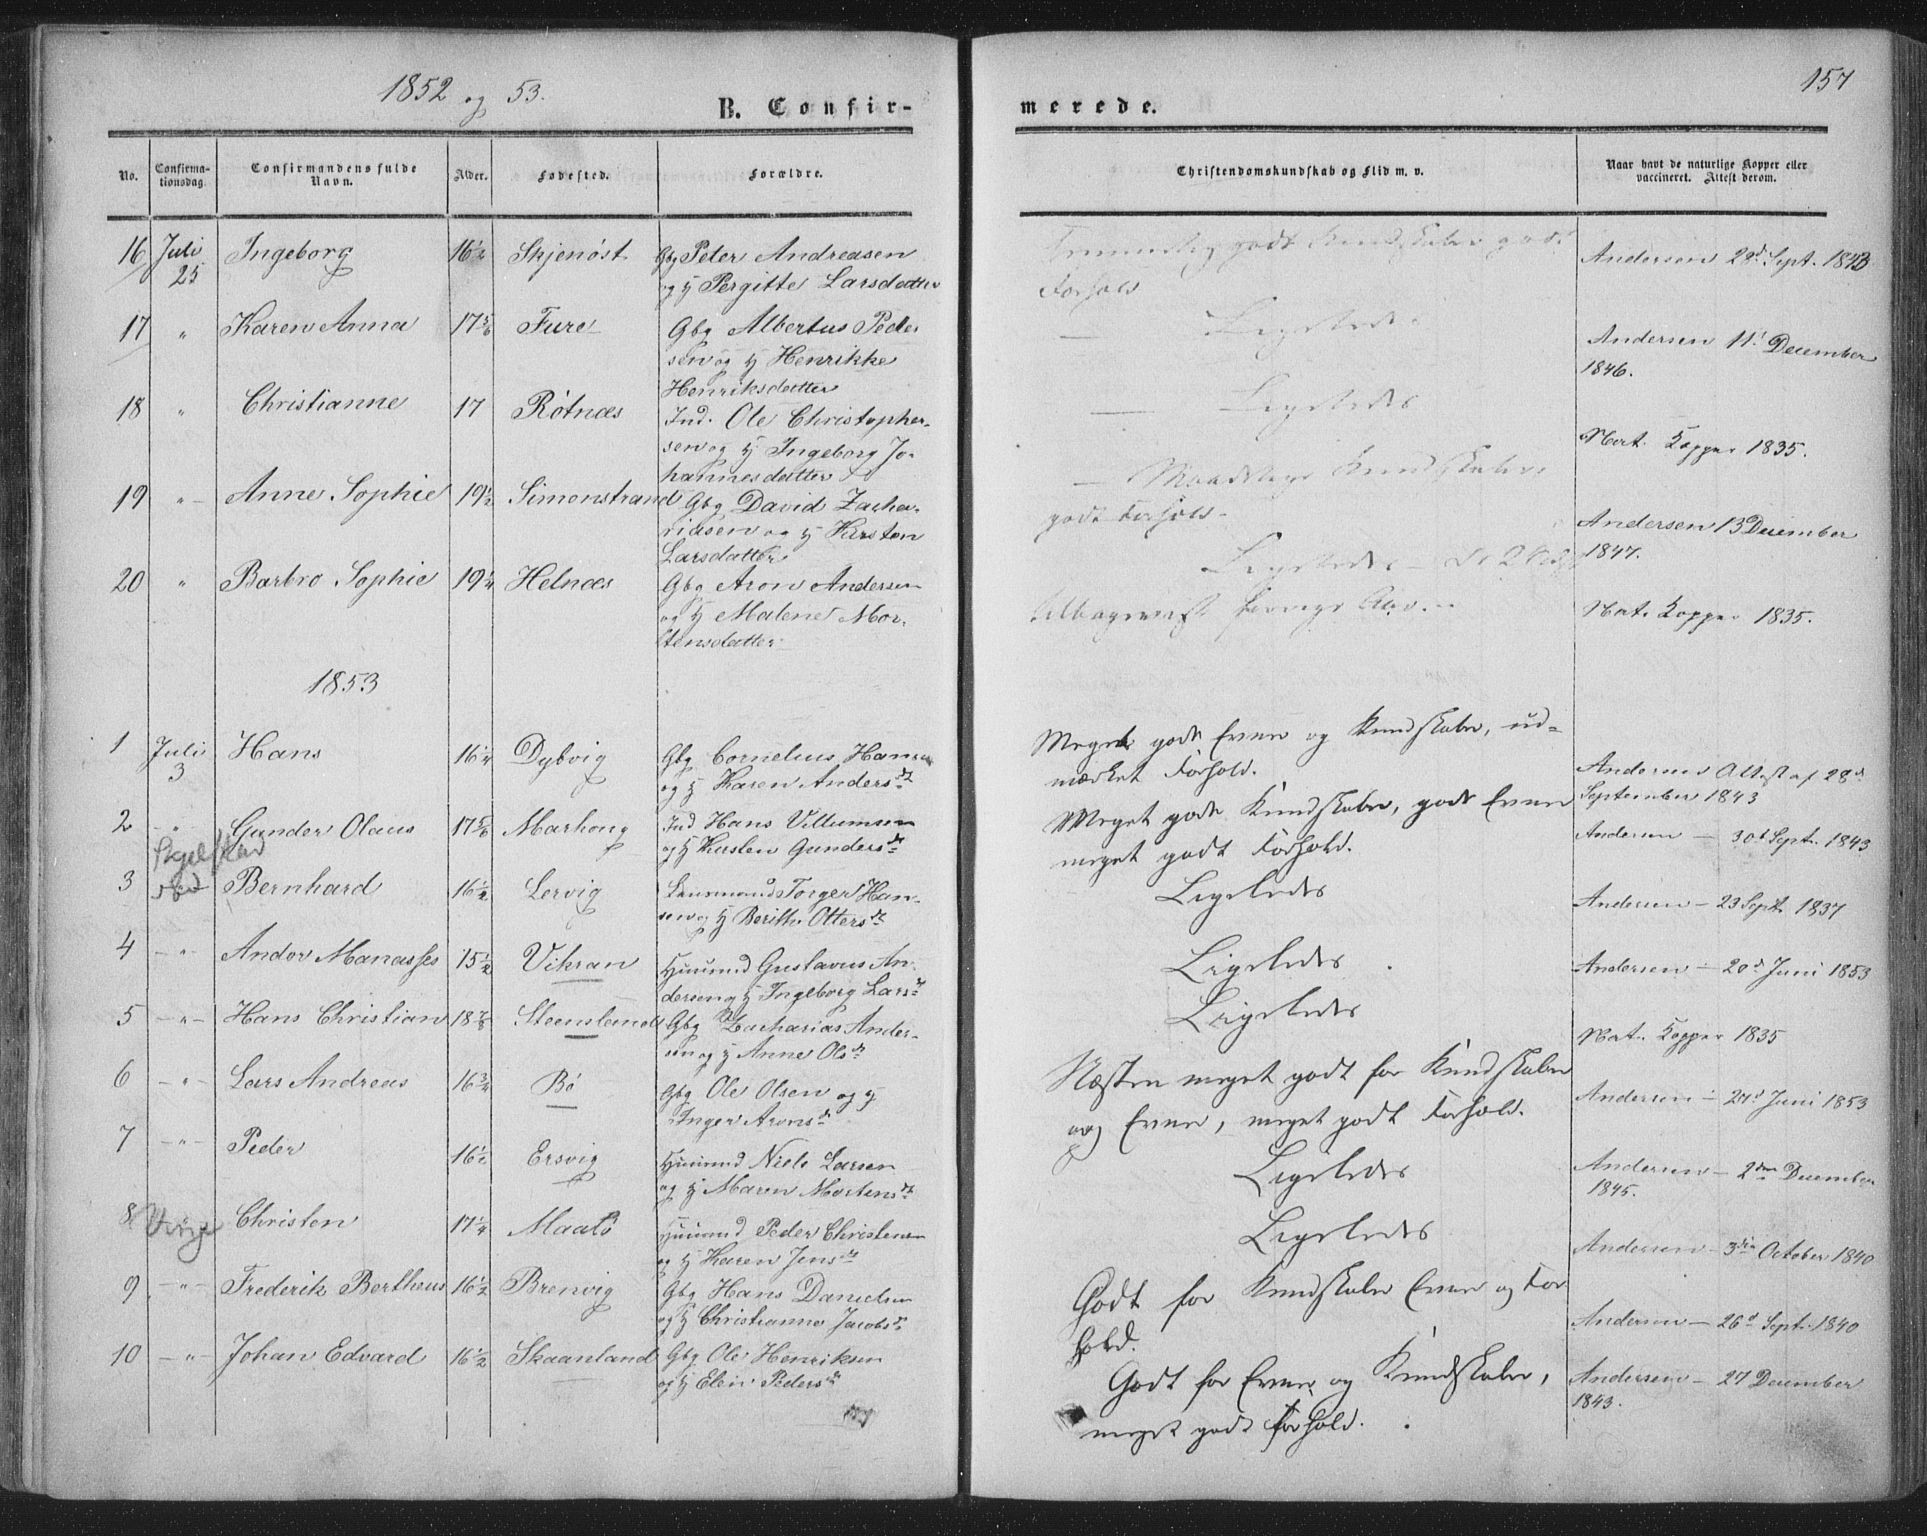 1852 og 53.
B. Confir-
merede.
157
No.
Confirma-
tionsdag
Confirmandens fulde
Navn.
Alder.
Fødested.
Forældre.
Christendomskundskab og Flid m. v.
Naar havt de naturlige Kopper eller
vaccineret. Attest derom.
16 Juli 25 Ingeborg 16½ Skjenøst Gbg Peter Andreasen
og H Pergitte Larsdatter
godt Kundskaber godt
Forhold
Andersen 28d Sept. 1843
17 " Karen Anna 17 5/6 Fure Gbg Albertus Peder
sen og H Henrikke
Henriksdatter
Ligeledes
Andersen 11t December
1846.
18 " Christianne 17 Rötnæs Ind. Ole Christopher-
sen og H Ingeborg Jo-
hannesdatter
Ligeledes
Nat. Kopper 1835.
19 " Anne Sophie 19½ Simonstrand Gbg David Zacha-
riasen og H Kirsten
Larsdatter
Maadelige Kundskaber
godt Forhold
Andersen 13 December
1847.
20 " Barbro Sophie 19¼ Helnæs Gbg Aron Andersen
og H Malene Mor-
tensdatter
Ligeledes
tilbageviist forrige Aar.
Nat. Kopper 1835.
1853
1 Juli 3 Hans 16¼ Dybvig Gbg Cornelius Hansen
og H Karen Andersdt
Meget godt Evner og Kundskaber, ud-
mærket Forhold.
Andersens Attest af 28d
September 1843
2 " Gunder Olaus 17 5/6 Marhoug Ind Hans Villumsen
og H Kirsten Gundersdt
Meget gode Kundskaber, gode Evner
meget godt Forhold.
Andersen — 30t Sept. 1843
3 Bernhard 16½ Lervig Torger Han-
sen og H Berithe Ottersdt
Ligeledes
Andersen — 23 Sept. 1837
4 " Andor Manasses 15½ Vikran Huusmd Gustavus An-
dersen og H Ingeborg Larsdt
Ligeledes
Andersen — 20d Juni 1853
5 " Hans Christian 18 7/8 Steensland Gbg Zacharias Ander-
sen og H Anne Olsdt
Ligeledes
Nat. Kopper 1835
6 " Lars Andreas 16¾ Bö Gbg Ole Olsen og H
Inger Aronsdt
Næsten meget godt for Kundskaber
og Evner, meget godt Forhold.
Andersen — Juni 1853
7 " Peder 16½ Ersvig Huusmd Niels Larsen
og H Maren Mortensdt
Ligeledes
Andersen — 2den December
1845.
8 Christen 17¼ Maatö Huusmd Peder Christensen
og H Karen Jensdt
Ligeledes
Andersen — 3die October 1840
9 " Frederik Bertheus 16½ Brenvig Gbg Hans Danielsen
og H Christianne Jacobsdt
Godt for Kundskaber Evner og For
hold.
Andersen — 26d Sept. 1840
10 " Johan Edvard 16½ Skaanland Gbg Ole Henriksen
og H Elen Pedersdt
Godt for Evner og Kundskaber,
meget godt Forhold.
Andersen — 27 December
1843.